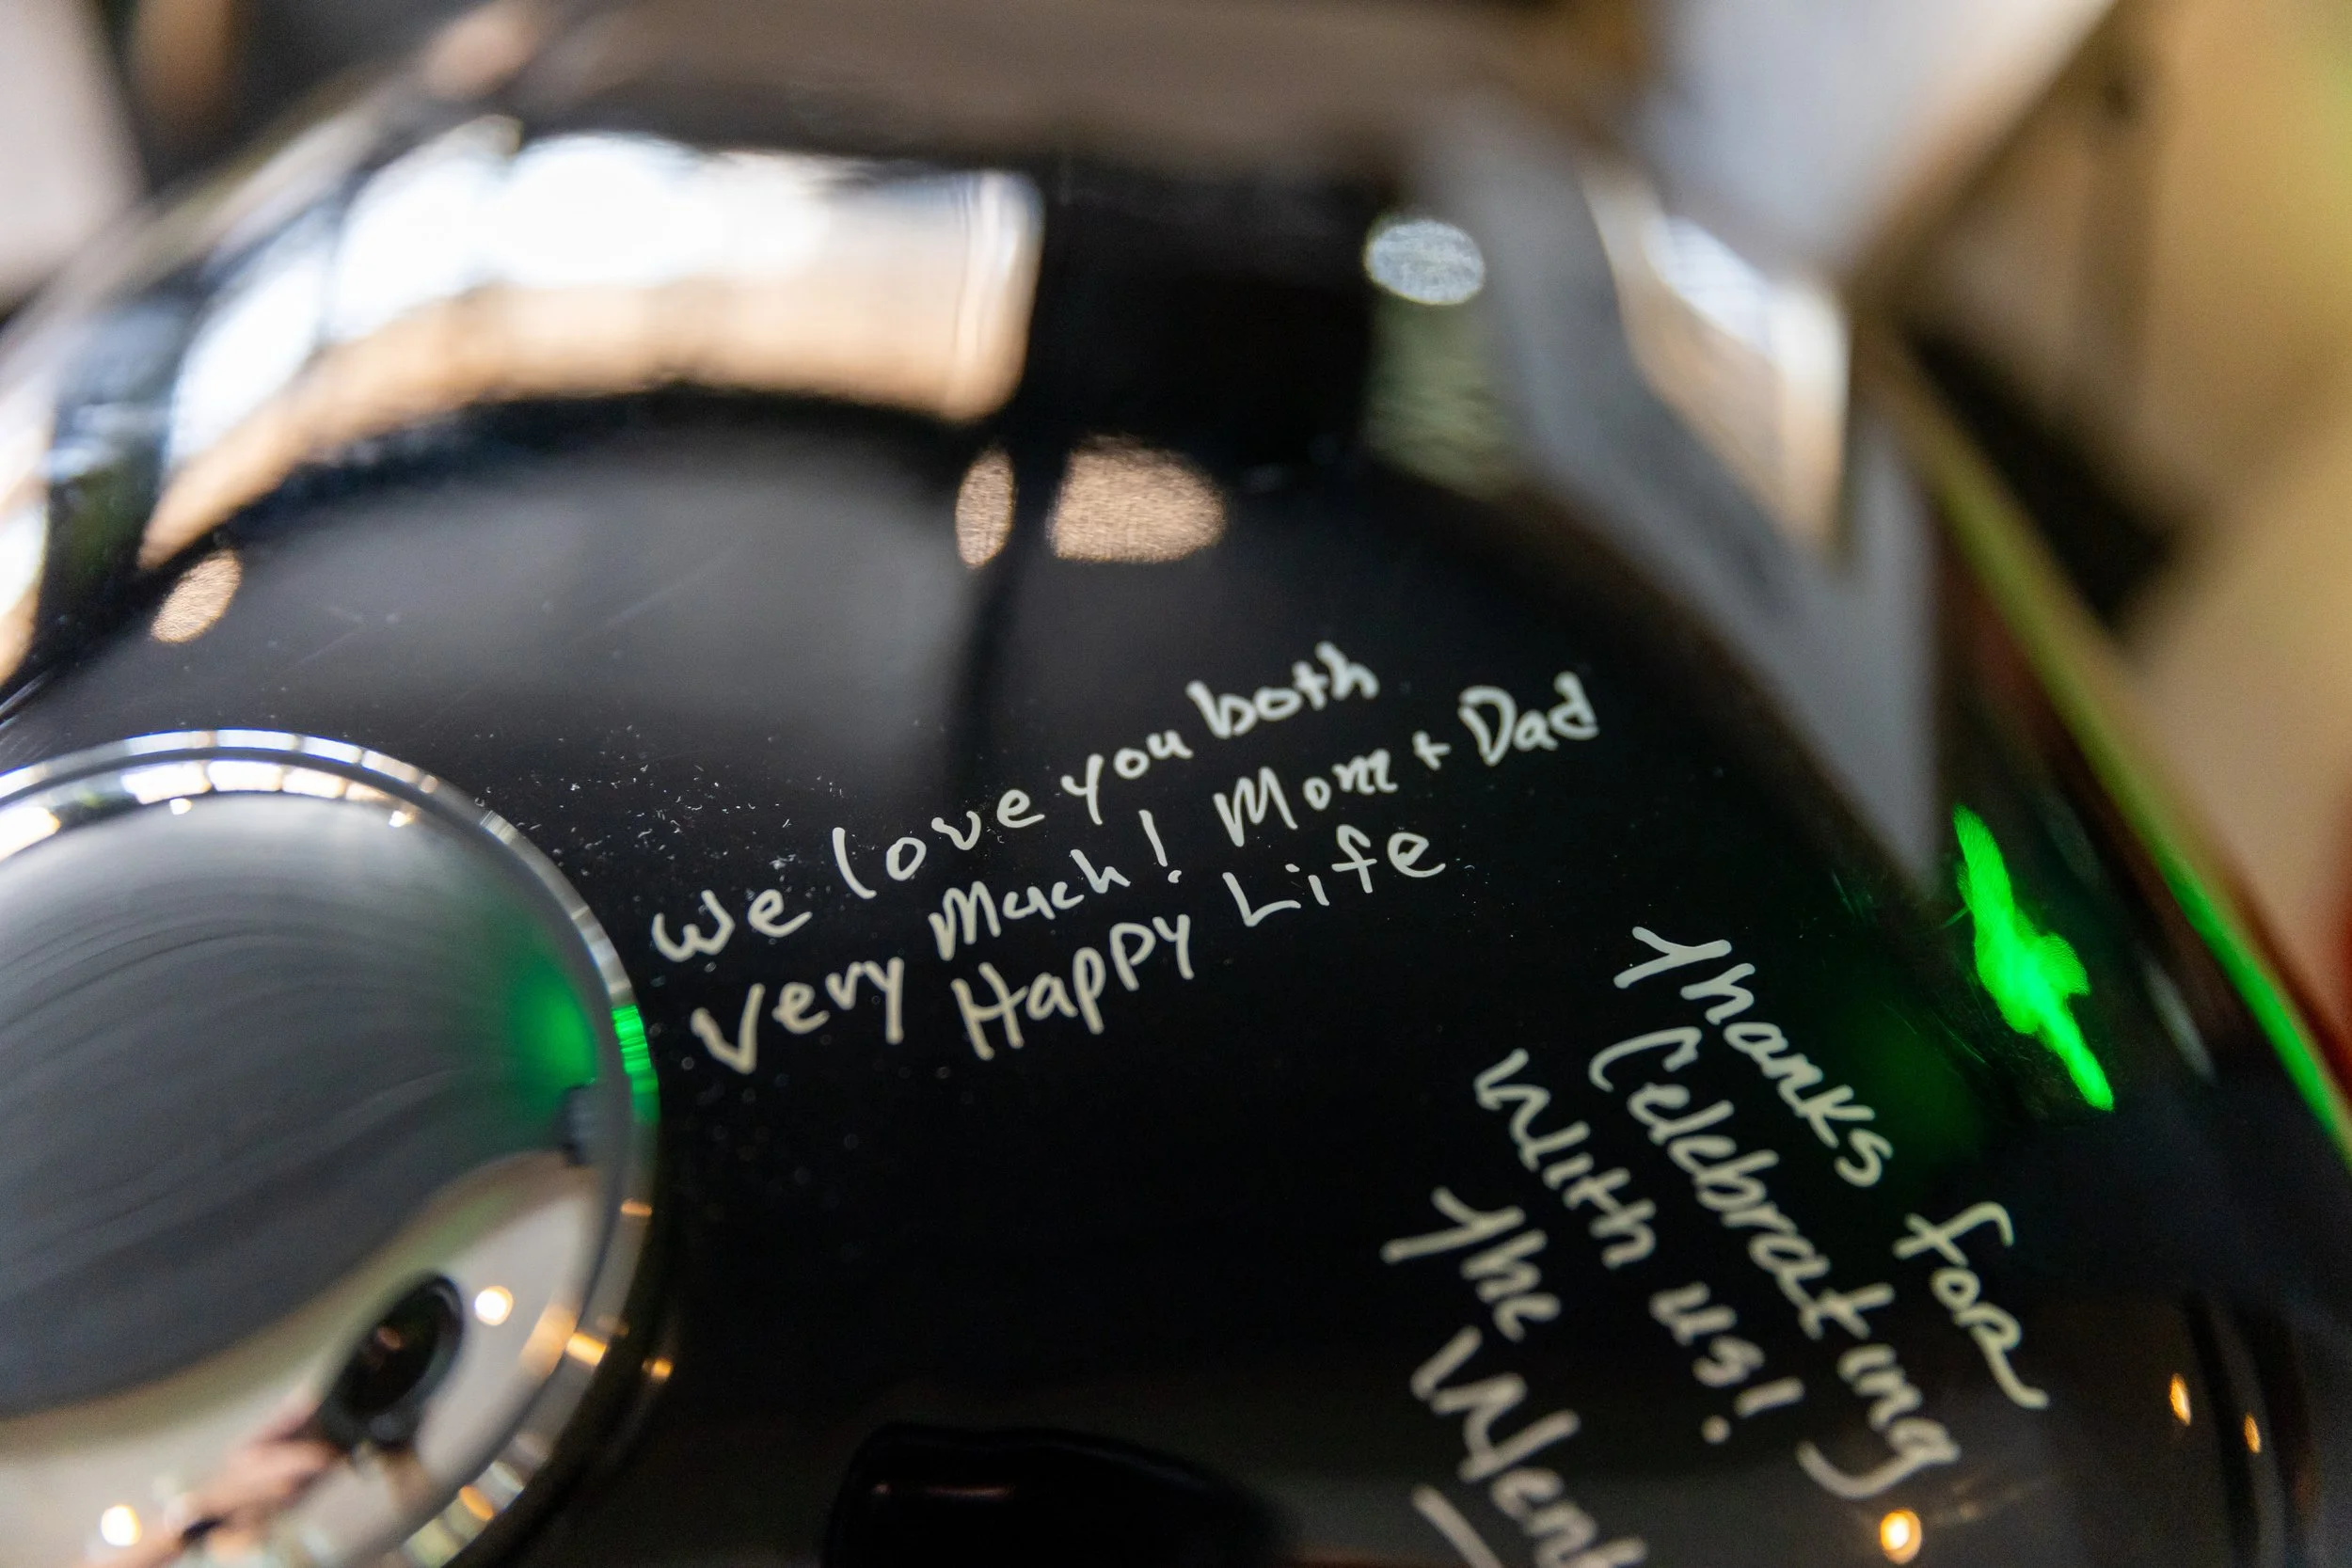 We love you both
Very Much! Mom + Dad
Happy Life
Thanks for
Celebrating
With us!
The